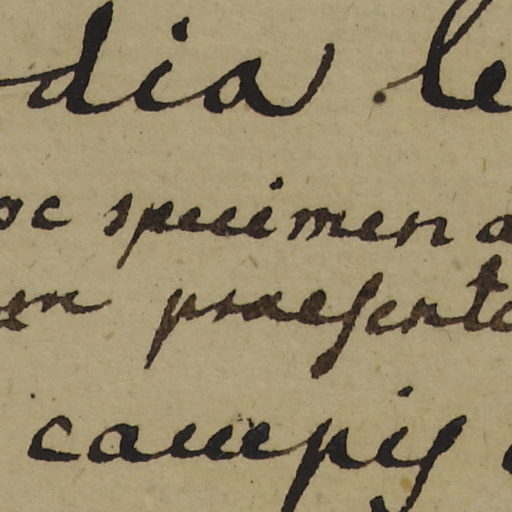 dia . le
oc specimen a
en praesente
campis